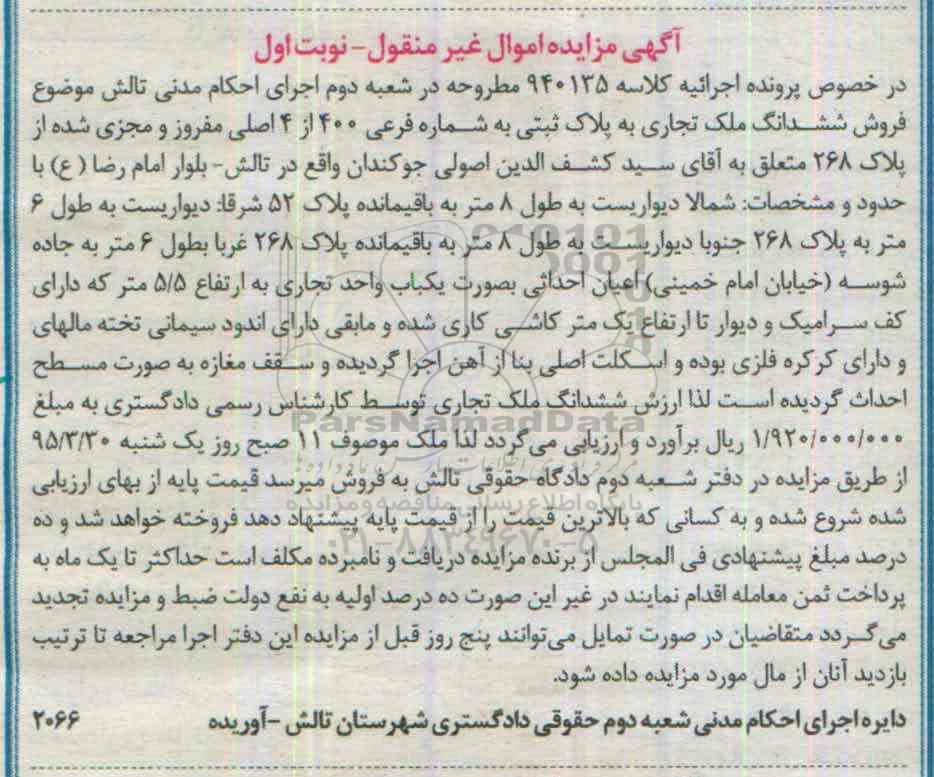 آگهی مزایده اموال غیر منقول - نوبت اول
در خصوص پرونده اجرائیه کلاسه ۹۴۰۱۳۵ مطروحه در شعبه دوم اجرای احکام مدنی تالش موضوع
فروش ششدانگ ملک تجاری به پلاک ثبتی به شماره فرعی ۴۰۰ از ۴ اصلی مفروز و مجزی شده از
پلاک ۲۶۸ متعلق به آقای سید کشف الدین اصولی جوکندان واقع در تالش- بلوار امام رضا (ع) با
حدود و مشخصات: شمالا دیواریست به طول ۸ متر به باقیمانده پلاک ۵۲ شرقا: دیواریست به طول ۶
متر به پلاک ۲۶۸ جنوبا دیواریست به طول ۸ متر به باقیمانده پلاک ۲۶۸ غربا بطول ۶ متر به جاده
شوسه (خیابان امام خمینی) اعیان احداثی بصورت یکباب واحد تجاری به ارتفاع ۵/۵ متر که دارای
کف سرامیک و دیوار تا ارتفاع یک متر کاشی کاری شده و مابقی دارای اندود سیمانی تخته مالهای
و دارای کرکره فلزی بوده و اسکلت اصلی بنا از آهن اجرا گردیده و سقف مغازه به صورت مسطح
احداث گردیده است لذا ارزش ششدانگ ملک تجاری توسط کارشناس رسمی دادگستری به مبلغ
۱/۹۲۰/۰۰۰/۰۰۰ ریال برآورد و ارزیابی می‌گردد لذا ملک موصوف ۱۱ صبح روز یک شنبه ۹۵/۳/۳۰
از طریق مزایده در دفتر شعبه دوم دادگاه حقوقی تالش به فروش میرسد قیمت پایه از بهای ارزیابی
شده شروع شده و به کسانی که بالاترین قیمت را از قیمت پایه پیشنهاد دهد فروخته خواهد شد و ده
درصد مبلغ پیشنهادی فی المجلس از برنده مزایده دریافت و نامبرده مکلف است حداکثر تا یک ماه به
پرداخت ثمن معامله اقدام نمایند در غیر این صورت ده درصد اولیه به نفع دولت ضبط و مزایده تجدید
می‌گردد متقاضیان در صورت تمایل می‌توانند پنج روز قبل از مزایده این دفتر اجرا مراجعه تا ترتیب
بازدید آنان از مال مورد مزایده داده شود.
دایره اجرای احکام مدنی شعبه دوم حقوقی دادگستری شهرستان تالش -آوریده ۲۰۶۶
ParsNamadData
پایگاه اطلاع رسانی مناقصه و مزایده
۰۲۱-۸۸۳۴۹۶۷۰-۵